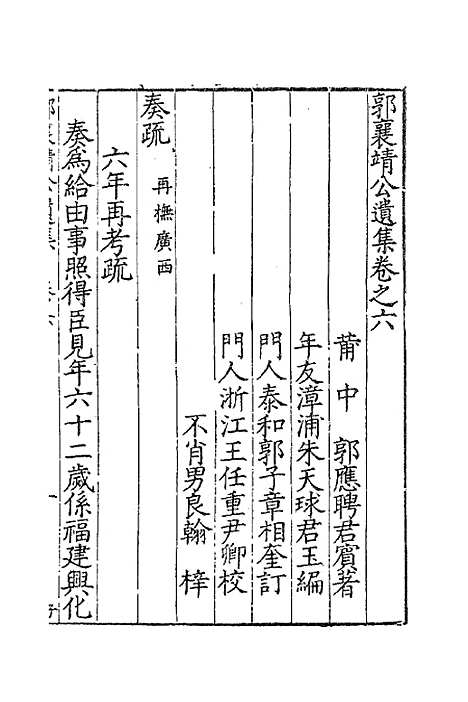 郭襄靖公遺集卷之六
莆中　郭應聘君賓著
年友漳浦朱天球君玉編
門人泰和郭子章相奎訂
門人浙江王任重尹卿校
不肖男良翰　梓
奏疏　再撫廣西
六年再考疏
奏爲給由事照得臣見年六十二歲係福建興化